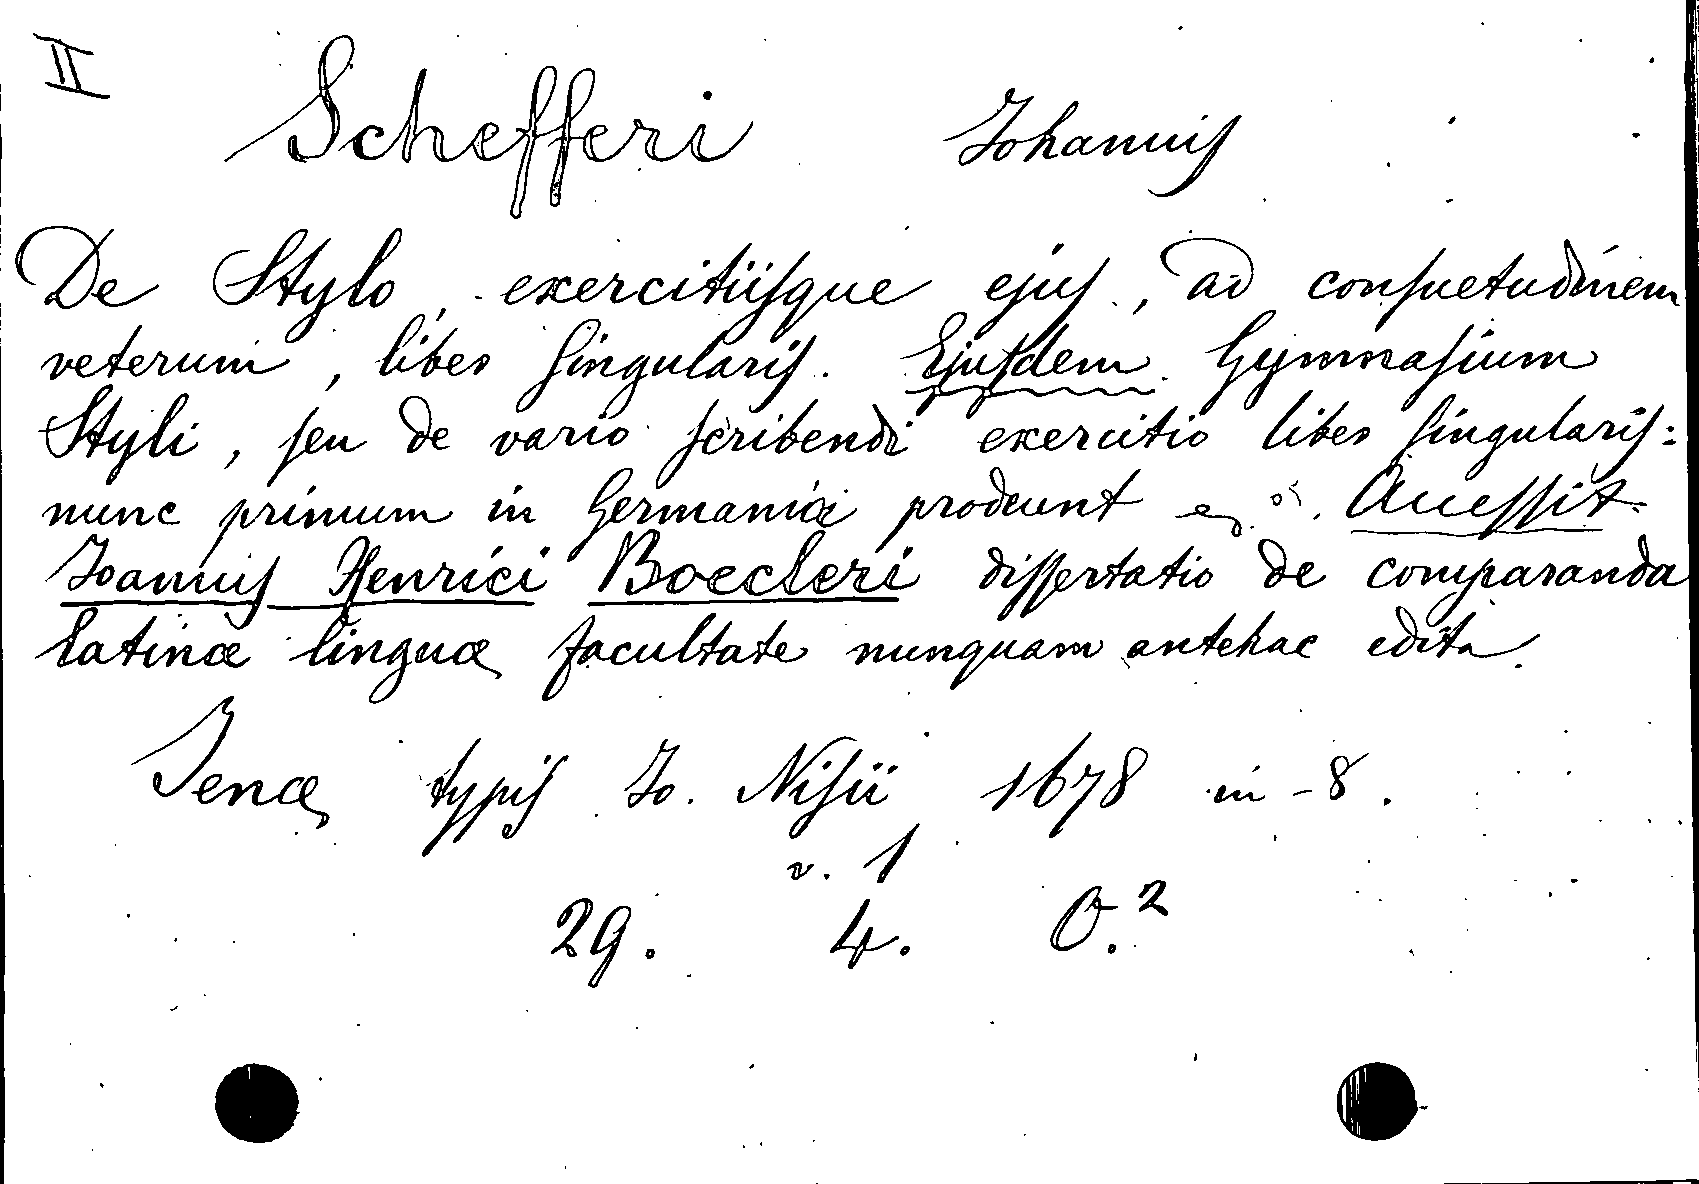 II
Schefferi Johannis
De Stylo, exercitiisque ejus, ad consuetudinem
veterum, liber singularis. Ejusdem Gymnasium
Styli, seu de vario scribendi exercitio liber singularis:
nunc primum in Germania prodeunt Accessit
Joannis Henrici Boecleri dissertatio de comparanda
latinæ linguæ facultate nunquam antehac edita.
Jenæ typis Jo. Nisii 1678 in-8.
v. 1
29. 4. O.²